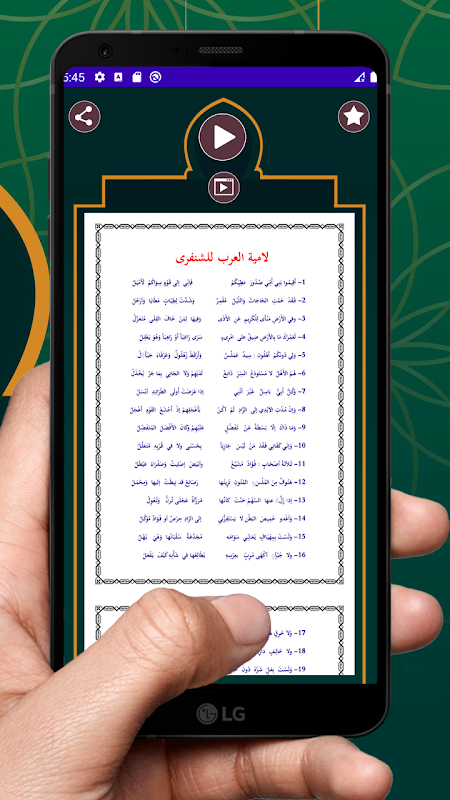 5:45
لامية العرب للشنفرى
1- أقيموا بني أمي صدور مطيكم فإني إلى قوم سواكم لأميل
2- فقد حمت الحاجات والليل مقمر وشدت لطيات مطايا وأرحل
3- وفي الأرض منأى للكريم عن الأذى وفيها لمن خاف القلى متعزل
4- لعمرك ما بالأرض ضيق على امرىء سرى راغبا أو راهبا وهو يعقل
5- ولي دونكم أهلون : سيد عملس وأرقط زهلول وعرفاء جيأل
6- هم الأهل لا مستودع السر ذائع لديهم ولا الجاني بما جر يخذل
7- وكل أبي باسل غير أنني إذا عرضت أولى الطرائد أبسل
8- وإن مدت الأيدي إلى الزاد لم أكن بأعجلهم إذ أجشع القوم أعجل
9- وما ذاك إلا بسطة عن تفضل عليهم وكان الأفضل المتفضل
10- وإني كفاني فقد من ليس جازيا بحسنى ولا في قربه متعلل
11- ثلاثة أصحاب : فؤاد مشيع وأبيض إصليت وصفراء عيطل
12- هتوف من الملس المتون تزينها رصائع قد نيطت إليها ومحمل
13- إذا زل عنها السهم حنت كأنها مرزأة عجلى ترن وتعول
14- وأغدو خميص البطن لا يستفزني إلى الزاد حرص أو فؤاد موكل
15- ولست بمهياف يعشي سوامه مجدعة سقبانها وهي بهل
16- ولا جبإ أكهى مرب بعرسه يطالعها في شأنه كيف يفعل
17- ولا خرق
18- ولا خالف
19- ولست بعل شره دون
LG